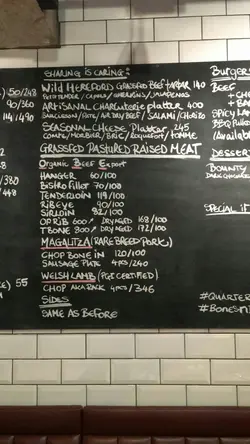 SHARING IS CARING:
WILD HEREFORD GRASSFED BEEF TARTAR 140
ARTISANAL CHARCUTERIE PLATTER 400
AIR DRY BEEF / SALAMI / CHORIZO
SEASONAL CHEESE PLATTER 245
COMTE / MORBIER / BRIE / ROQUEFORT / TOMME
GRASSFED PASTURED RAISED MEAT
ORGANIC BEEF EXPORT
HANGER 60/100
BISTRO FILLET 70/100
TENDERLOIN 119/100
RIBEYE 90/100
SIRLOIN 82/100
OP RIB 600 DRY AGED 168/100
TBONE 800 DRY AGED 172/100
MAGALITZA (RARE BREED PORK)
CHOP BONE IN 120/100
SAUSAGE PLATE 4PCS/240
WELSH LAMB (PGI CERTIFIED)
CHOP 4PCS/346
SIDES
SAME AS BEFORE
50/248
90/360
114/490
55
BURGERS
BEEF
+ CHE
+ BA
SPICY LAM
BBQ PULLED
(AVAILAB
DESSERT
BOUNTY
DARK
SPECIAL IT
#QUARTER
#BONESN